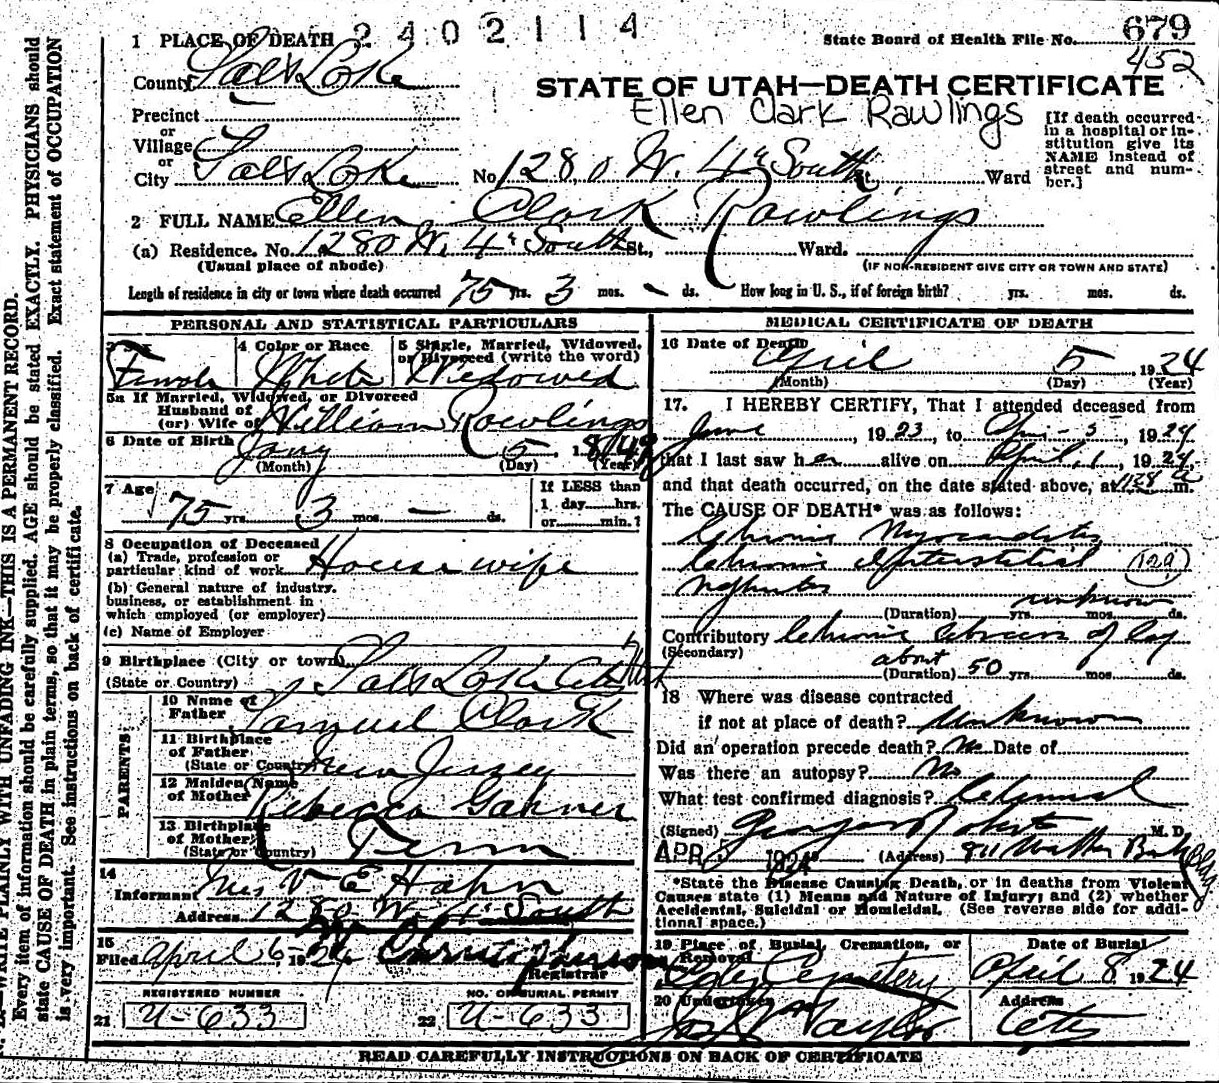 2402114
1 PLACE OF DEATH
State Board of Health File No. 679
452
County Salt Lake
STATE OF UTAH—DEATH CERTIFICATE
Ellen Clark Rawlings
Precinct
or
Village
or
City Salt Lake No. 1280 W. 4th South St. Ward
[If death occurred in a hospital or institution give its NAME instead of street and number.]
2 FULL NAME Ellen Clark Rawlings
(a) Residence. No. 1280 W. 4th South St., Ward.
(Usual place of abode)
(IF NON-RESIDENT GIVE CITY OR TOWN AND STATE)
Length of residence in city or town where death occurred 75 yrs. 3 mos. - ds. How long in U. S., if of foreign birth? yrs. mos. ds.
PERSONAL AND STATISTICAL PARTICULARS
3 Sex
4 Color or Race
5 Single, Married, Widowed, or Divorced (write the word)
Female White Widowed
5a If Married, Widowed, or Divorced
Husband of
(or) Wife of William Rawlings
6 Date of Birth Jany 5, 1849
(Month) (Day) (Year)
7 Age
75 yrs. 3 mos. — ds.
If LESS than
1 day hrs.
or min.?
8 Occupation of Deceased
(a) Trade, profession or particular kind of work Housewife
(b) General nature of industry, business, or establishment in which employed (or employer)
(c) Name of Employer
9 Birthplace (City or town)
(State or Country) Salt Lake City Utah
PARENTS
10 Name of Father Samuel Clark
11 Birthplace of Father
(State or Country) New Jersey
12 Maiden Name of Mother Rebecca Garner
13 Birthplace of Mother
(State or Country) Tenn
14
Informant Mrs V E Hahn
Address 1280 W. South
15
Filed April 6, 1924
Registrar
REGISTERED NUMBER
21 U-633
NO. OF BURIAL PERMIT
22 U-633
MEDICAL CERTIFICATE OF DEATH
16 Date of Death
April 5 1924
(Month) (Day) (Year)
17. I HEREBY CERTIFY, That I attended deceased from
June, 1923, to Apr - 5, 1924
that I last saw her alive on April, 1, 1924,
and that death occurred, on the date stated above, at m.
The CAUSE OF DEATH* was as follows:
Chronic Myocarditis
Chronic Interstitial (129)
Nephritis
unknown
(Duration) yrs. mos. ds.
Contributory Chronic
(Secondary)
about
(Duration) 50 yrs. mos. ds.
18 Where was disease contracted
if not at place of death? Unknown
Did an operation precede death? No Date of
Was there an autopsy? No
What test confirmed diagnosis?
(Signed) M. D.
APR 5 1924 (Address) 811 Walker Bank Bldg
*State the Disease Causing Death, or in deaths from Violent Causes state (1) Means and Nature of Injury; and (2) whether Accidental, Suicidal or Homicidal. (See reverse side for additional space.)
19 Place of Burial, Cremation, or Removal
Date of Burial
City Cemetery April 8 1924
20 Undertaker
Address
Taylor City
READ CAREFULLY INSTRUCTIONS ON BACK OF CERTIFICATE
WRITE PLAINLY WITH UNFADING INK—THIS IS A PERMANENT RECORD.
Every item of information should be carefully supplied. AGE should be stated EXACTLY. PHYSICIANS should
state CAUSE OF DEATH in plain terms, so that it may be properly classified. Exact statement of OCCUPATION
is very important. See instructions on back of certificate.